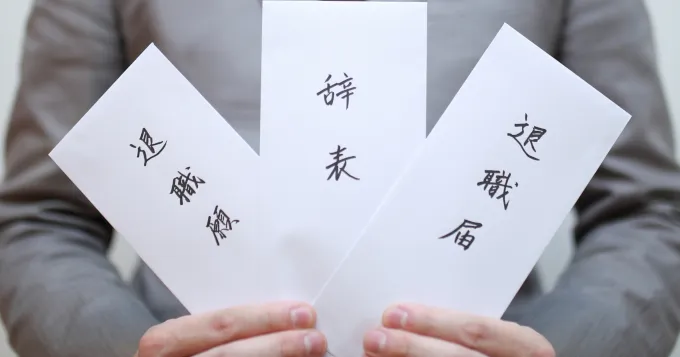 退職願
辞表
退職届